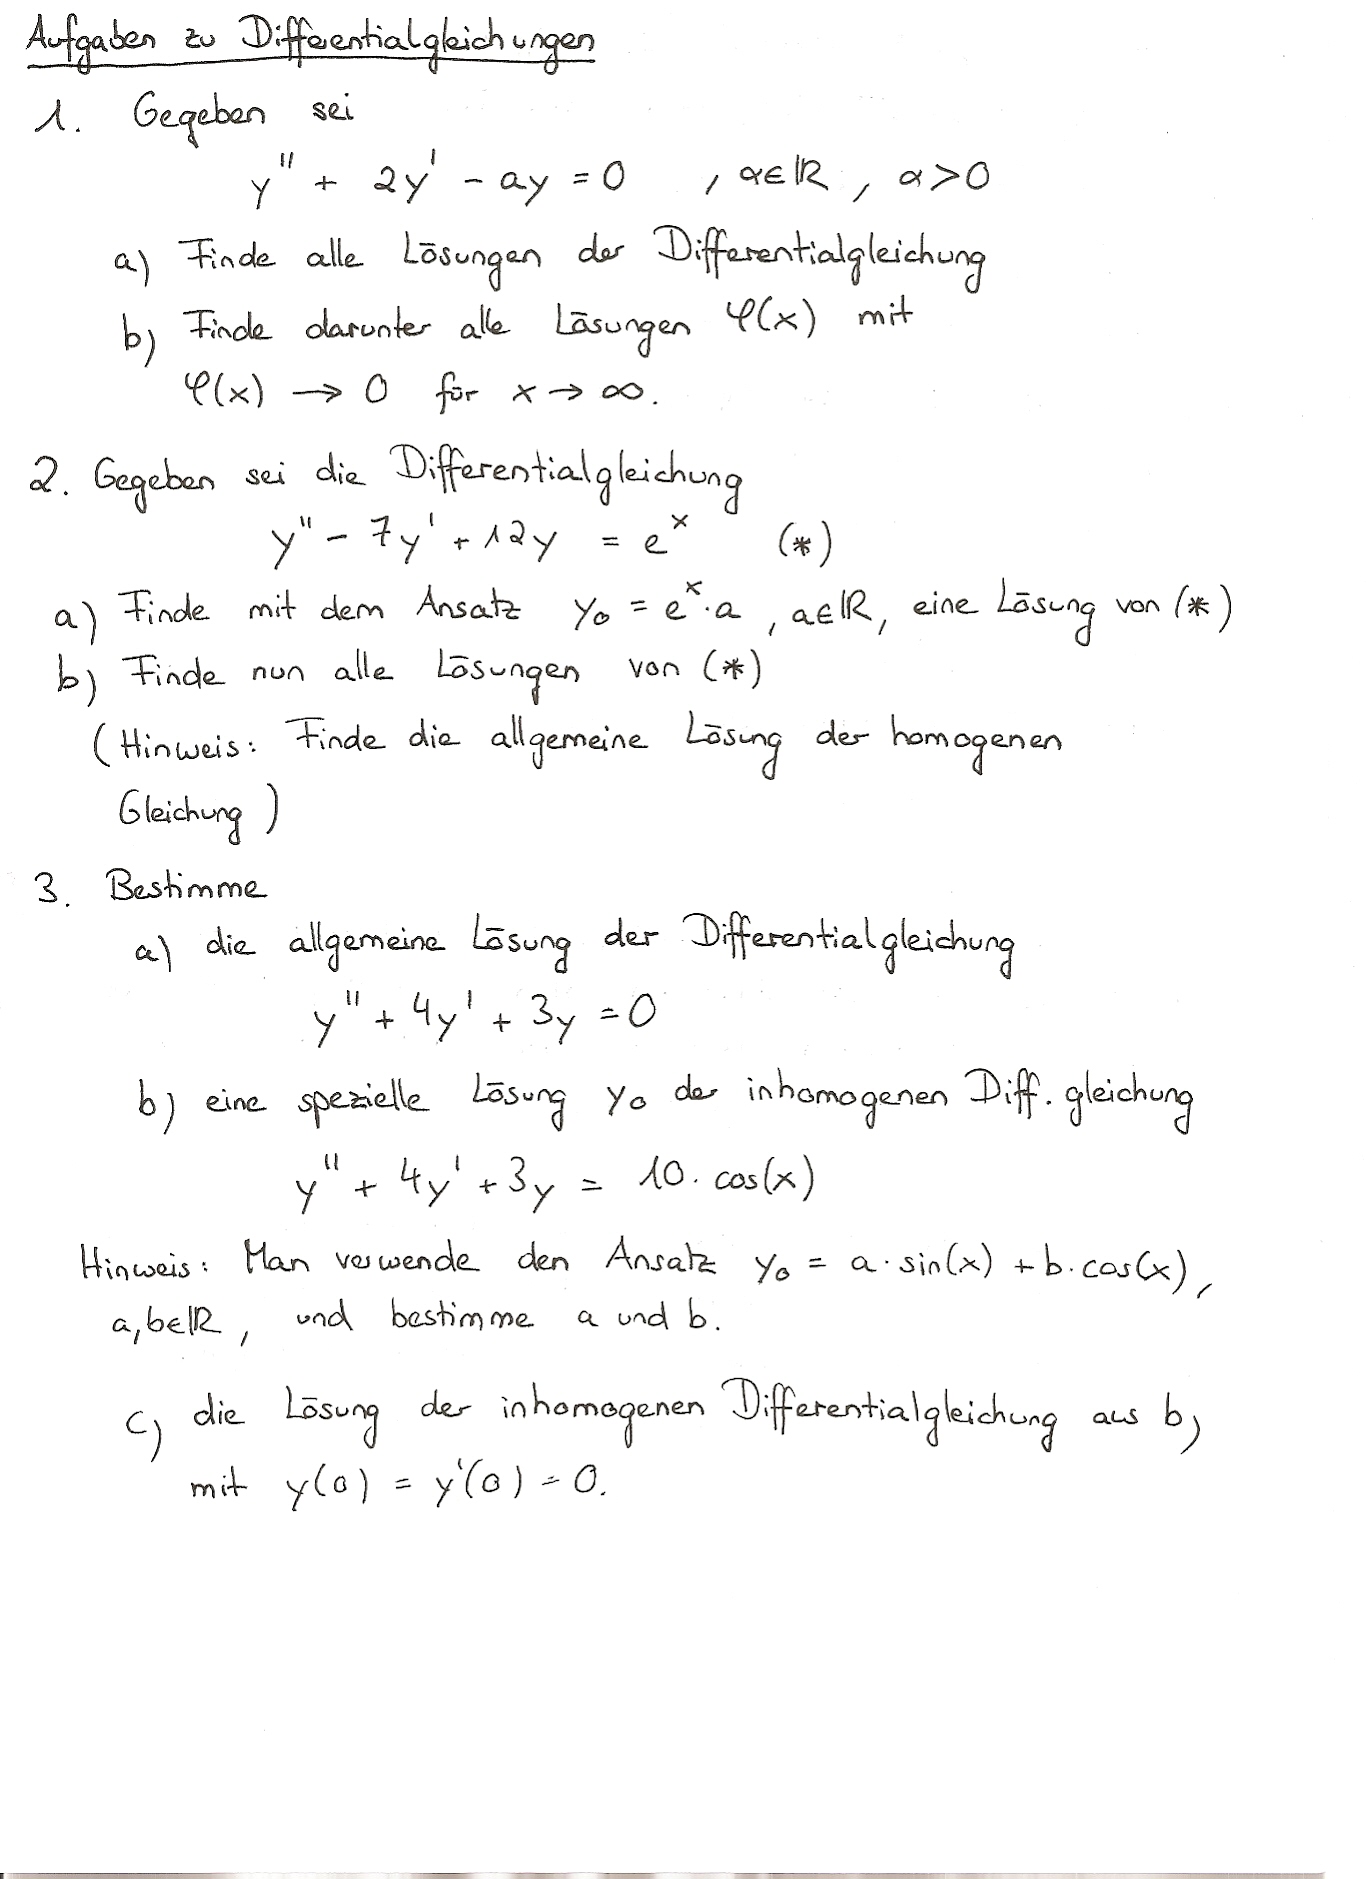 Aufgaben zu Differentialgleichungen
1. Gegeben sei
y'' + 2y' - ay = 0 , a∈ℝ, a>0
a) Finde alle Lösungen der Differentialgleichung
b) Finde darunter alle Lösungen φ(x) mit
φ(x) → 0 für x → ∞.
2. Gegeben sei die Differentialgleichung
y'' - 7y' + 12y = e^x (*)
a) Finde mit dem Ansatz y₀ = e^x · a, a∈ℝ, eine Lösung von (*)
b) Finde nun alle Lösungen von (*)
(Hinweis: Finde die allgemeine Lösung der homogenen
Gleichung)
3. Bestimme
a) die allgemeine Lösung der Differentialgleichung
y'' + 4y' + 3y = 0
b) eine spezielle Lösung y₀ der inhomogenen Diff.gleichung
y'' + 4y' + 3y = 10 · cos(x)
Hinweis: Man verwende den Ansatz y₀ = a · sin(x) + b · cos(x),
a,b∈ℝ, und bestimme a und b.
c) die Lösung der inhomogenen Differentialgleichung aus b)
mit y(0) = y'(0) = 0.